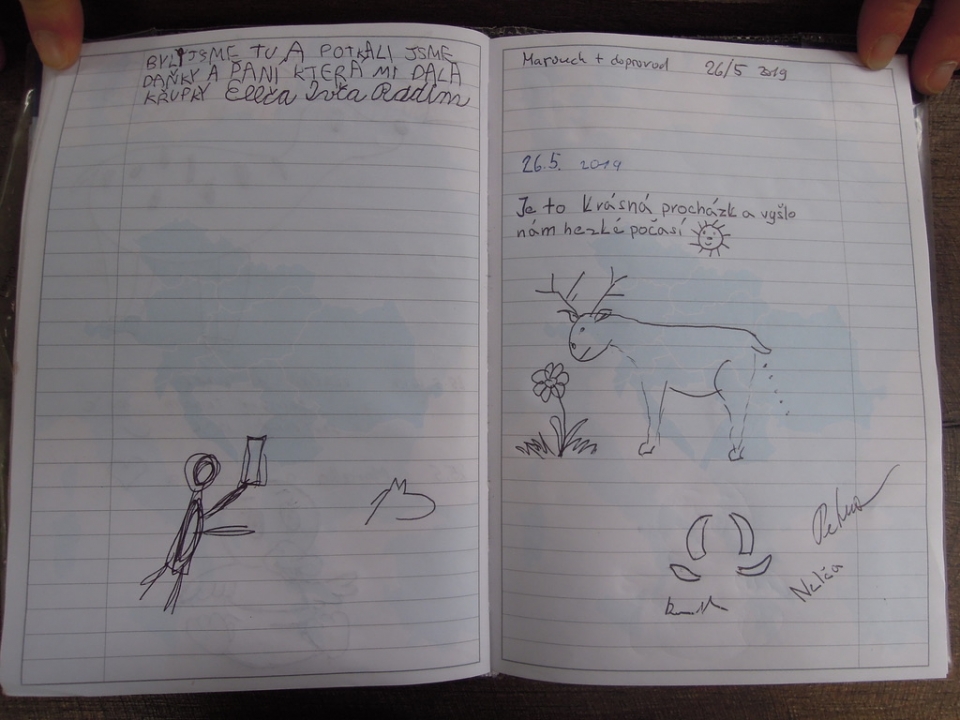 BYLI JSME TU A POTKALI JSME
DAŇKY A PANI KTERÁ MI DALA
KŘUPKY Ellča Ivča Radim
Marouch + doprovod 26/5 2019
26.5. 2019
Je to krásná procházka vyšlo
nám hezké počasí
Petra